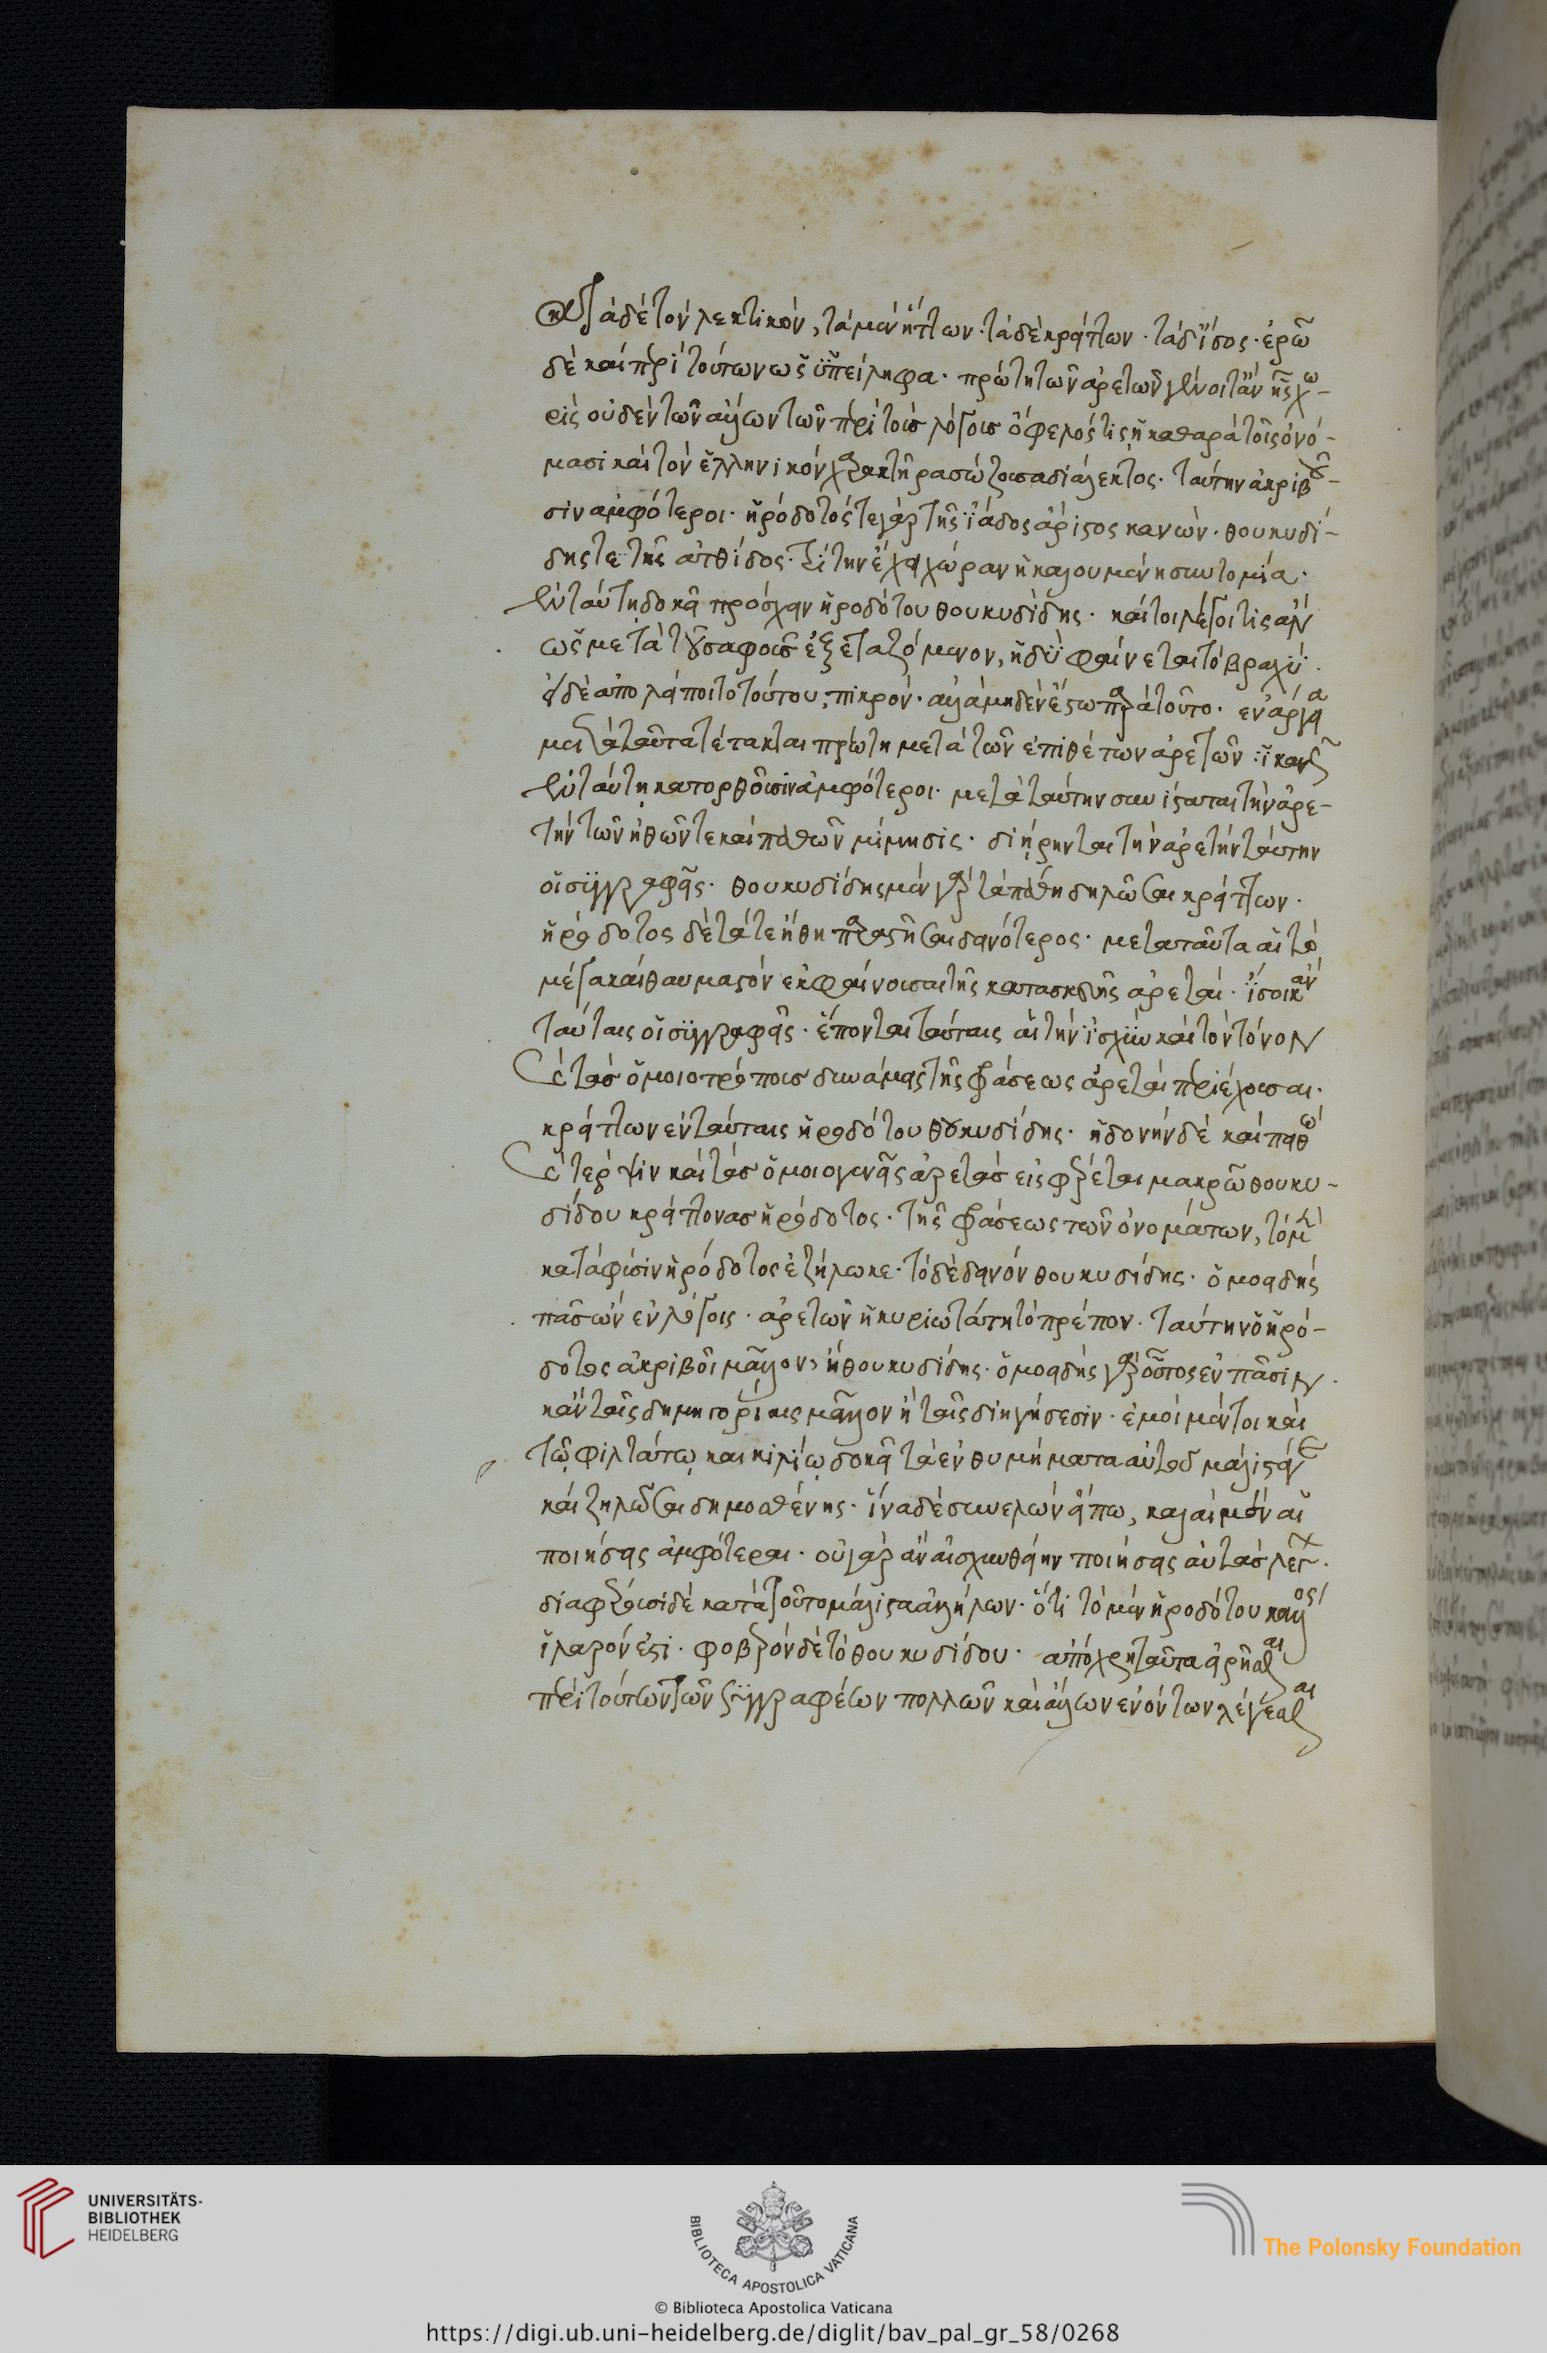 κατὰ δὲ τὸν λεκτικὸν, τὰ μὲν ἥττων· τὰ δὲ κρείττων· τὰ δ' ἴσος· ἐρῶ
δὲ καὶ περὶ τούτων ὡς ὑπείληφα· πρώτη τῶν ἀρετῶν γένοιτ' ἂν ἧς χω-
ρὶς οὐδὲν τῶν ἄλλων τῶν περὶ τοὺς λόγους ὄφελός τις, ἡ καθαρὰ τοῖς ὀνό-
μασι καὶ τὸν ἑλληνικὸν χαρακτῆρα σώζουσα διάλεκτος· ταύτην ἀκριβοῦ-
σιν ἀμφότεροι· ἡρόδοτός τε γὰρ τῆς ἰάδος ἄριστος κανών· θουκυδί-
δης τε τῆς ἀτθίδος· τρίτην ἔχει χώραν ἡ καλουμένη συντομία·
ἐν ταύτη δοκεῖ προέχειν ἡροδότου θουκυδίδης· καίτοι λέγοι τις ἂν
ὡς μετὰ τοῦ σαφοῦς ἐξεταζόμενον, ἡδὺ φαίνεται τὸ βραχύ·
εἰ δὲ ἀπολείποιτο τούτου, πικρόν· ἀλλὰ μηδὲν ἔστω παρὰ τοῦτο· ἐνάργεια
μετὰ ταῦτα τέτακται πρώτη μετὰ τῶν ἐπιθέτων ἀρετῶν· ἱκανῶς
ἐν ταύτη κατορθοῦσιν ἀμφότεροι· μετὰ ταύτην συνίσταται τὴν ἀρε-
τὴν τῶν ἠθῶν τε καὶ παθῶν μίμησις· διήρηνται τὴν ἀρετὴν ταύτην
οἱ συγγραφεῖς· θουκυδίδης μὲν γὰρ τὰ πάθη δηλῶσαι κρείττων·
ἡρόδοτος δὲ τά τε ἤθη παραστῆσαι δεινότερος· μετὰ ταῦτα αἱ τὸ
μέγα καὶ θαυμαστὸν ἐκφαίνουσαι τῆς κατασκευῆς ἀρεταί· ἴσοι κἀν
ταύταις οἱ συγγραφεῖς· ἕπονται ταύταις αἱ τὴν ἰσχὺν καὶ τὸν τόνον
καὶ τὰς ὁμοιοτρόπους δυνάμεις τῆς φράσεως ἀρεταὶ περιέχουσαι·
κρείττων ἐν ταύταις ἡροδότου θουκυδίδης· ἡδονὴν δὲ καὶ πειθὼ
καὶ τέρψιν καὶ τὰς ὁμοιογενεῖς ἀρετὰς εἰσφέρεται μακρῶ θουκυ-
δίδου κρείττονας ἡρόδοτος· τῆς φράσεως τῶν ὀνομάτων, τὸ μὲν
κατὰ φύσιν ἡρόδοτος ἐζήλωκε· τὸ δὲ δεινὸν θουκυδίδης· ὁμοειδὴς
πασῶν ἐν λόγοις· ἀρετῶν ἡ κυριωτάτη τὸ πρέπον· ταύτην ὁ ἡρό-
δοτος ἀκριβοῖ μᾶλλον, ἢ θουκυδίδης· ὁμοειδὴς γὰρ οὗτος ἐν πᾶσιν·
κἀν ταῖς δημηγορίαις μᾶλλον ἢ ταῖς διηγήσεσιν· ἐμοὶ μέντοι καὶ
τῶ φιλτάτω καικιλίω δοκεῖ τὰ ἐνθυμήματα αὐτοῦ μάλιστά γε
καὶ ζηλῶσαι δημοσθένης· ἵνα δὲ συνελὼν εἴπω, καλαὶ μὲν αἱ
ποιήσεις ἀμφότεραι· οὐ γὰρ ἂν αἰσχυνθείην ποιήσεις αὐτὰς λέγων·
διαφέρουσι δὲ κατὰ τοῦτο μάλιστα ἀλλήλων· ὅτι τὸ μὲν ἡροδότου κάλλος
ἱλαρόν ἐστι· φοβερὸν δὲ τὸ θουκυδίδου· ἀπόχρη ταῦτα εἰρῆσθαι
περὶ τούτων τῶν συγγραφέων πολλῶν καὶ ἄλλων ἐνόντων λέγεσθαι
UNIVERSITÄTS-
BIBLIOTHEK
HEIDELBERG
BIBLIOTECA APOSTOLICA VATICANA
The Polonsky Foundation
© Biblioteca Apostolica Vaticana
https://digi.ub.uni-heidelberg.de/diglit/bav_pal_gr_58/0268